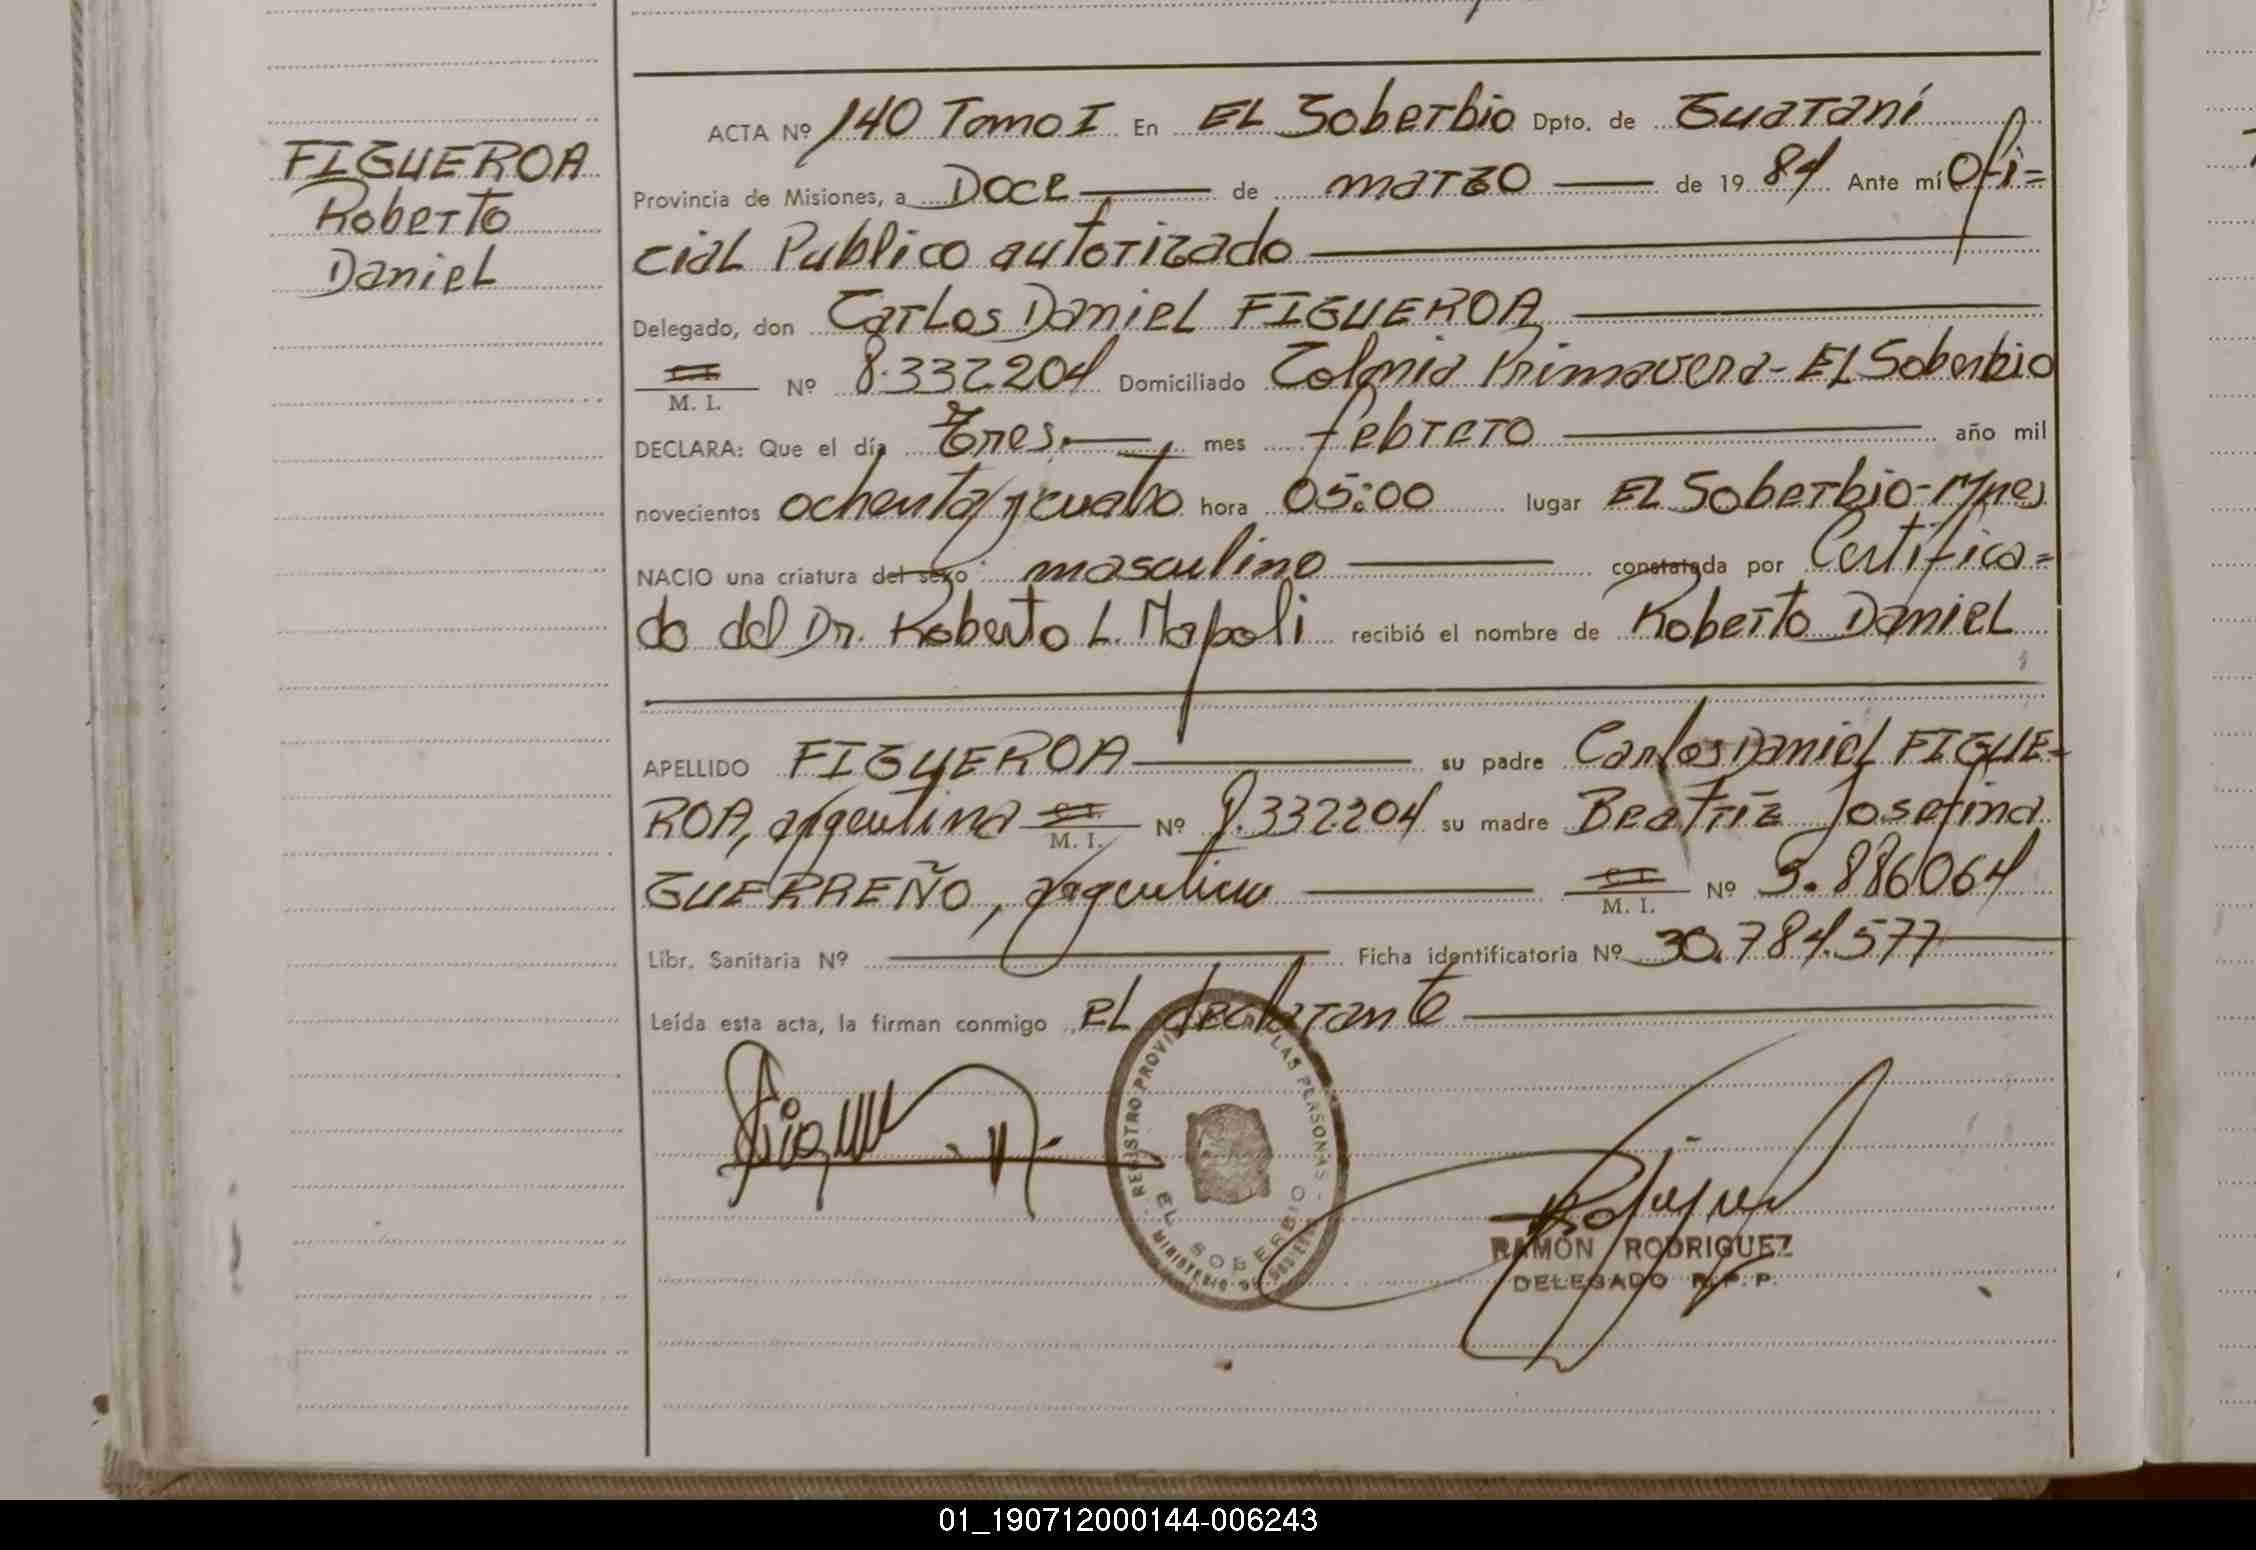 FIGUEROA
Roberto
Daniel
ACTA Nº 140 Tomo I En EL Soberbio Dpto. de Guaraní
Provincia de Misiones, a Doce de marzo de 1984 Ante mí Ofi=
cial Publico autorizado
Delegado, don Carlos Daniel FIGUEROA
M. I. Nº 8.332204 Domiciliado Colonia Primavera-EL Soberbio
DECLARA: Que el día Tres. mes febrero año mil
novecientos ochenta y cuatro hora 05:00 lugar EL Soberbio-Mnes
NACIO una criatura del sexo masculino constatada por Certifica=
do del Dr. Roberto L. Napoli recibió el nombre de Roberto Daniel
APELLIDO FIGUEROA su padre Carlos Daniel FIGUE-
ROA, argentino M. I. Nº 8.332204 su madre Beatriz Josefina
GUERREÑO, argentina M. I. Nº 5.886064
Libr. Sanitaria Nº Ficha identificatoria Nº 30.784.577
Leída esta acta, la firman conmigo el declarante
REGISTRO PROVINCIAL DE LAS PERSONAS
EL SOBERBIO
MINISTERIO DE GOBIERNO
RAMÓN RODRIGUEZ
DELEGADO R.P.P.
01_190712000144-006243